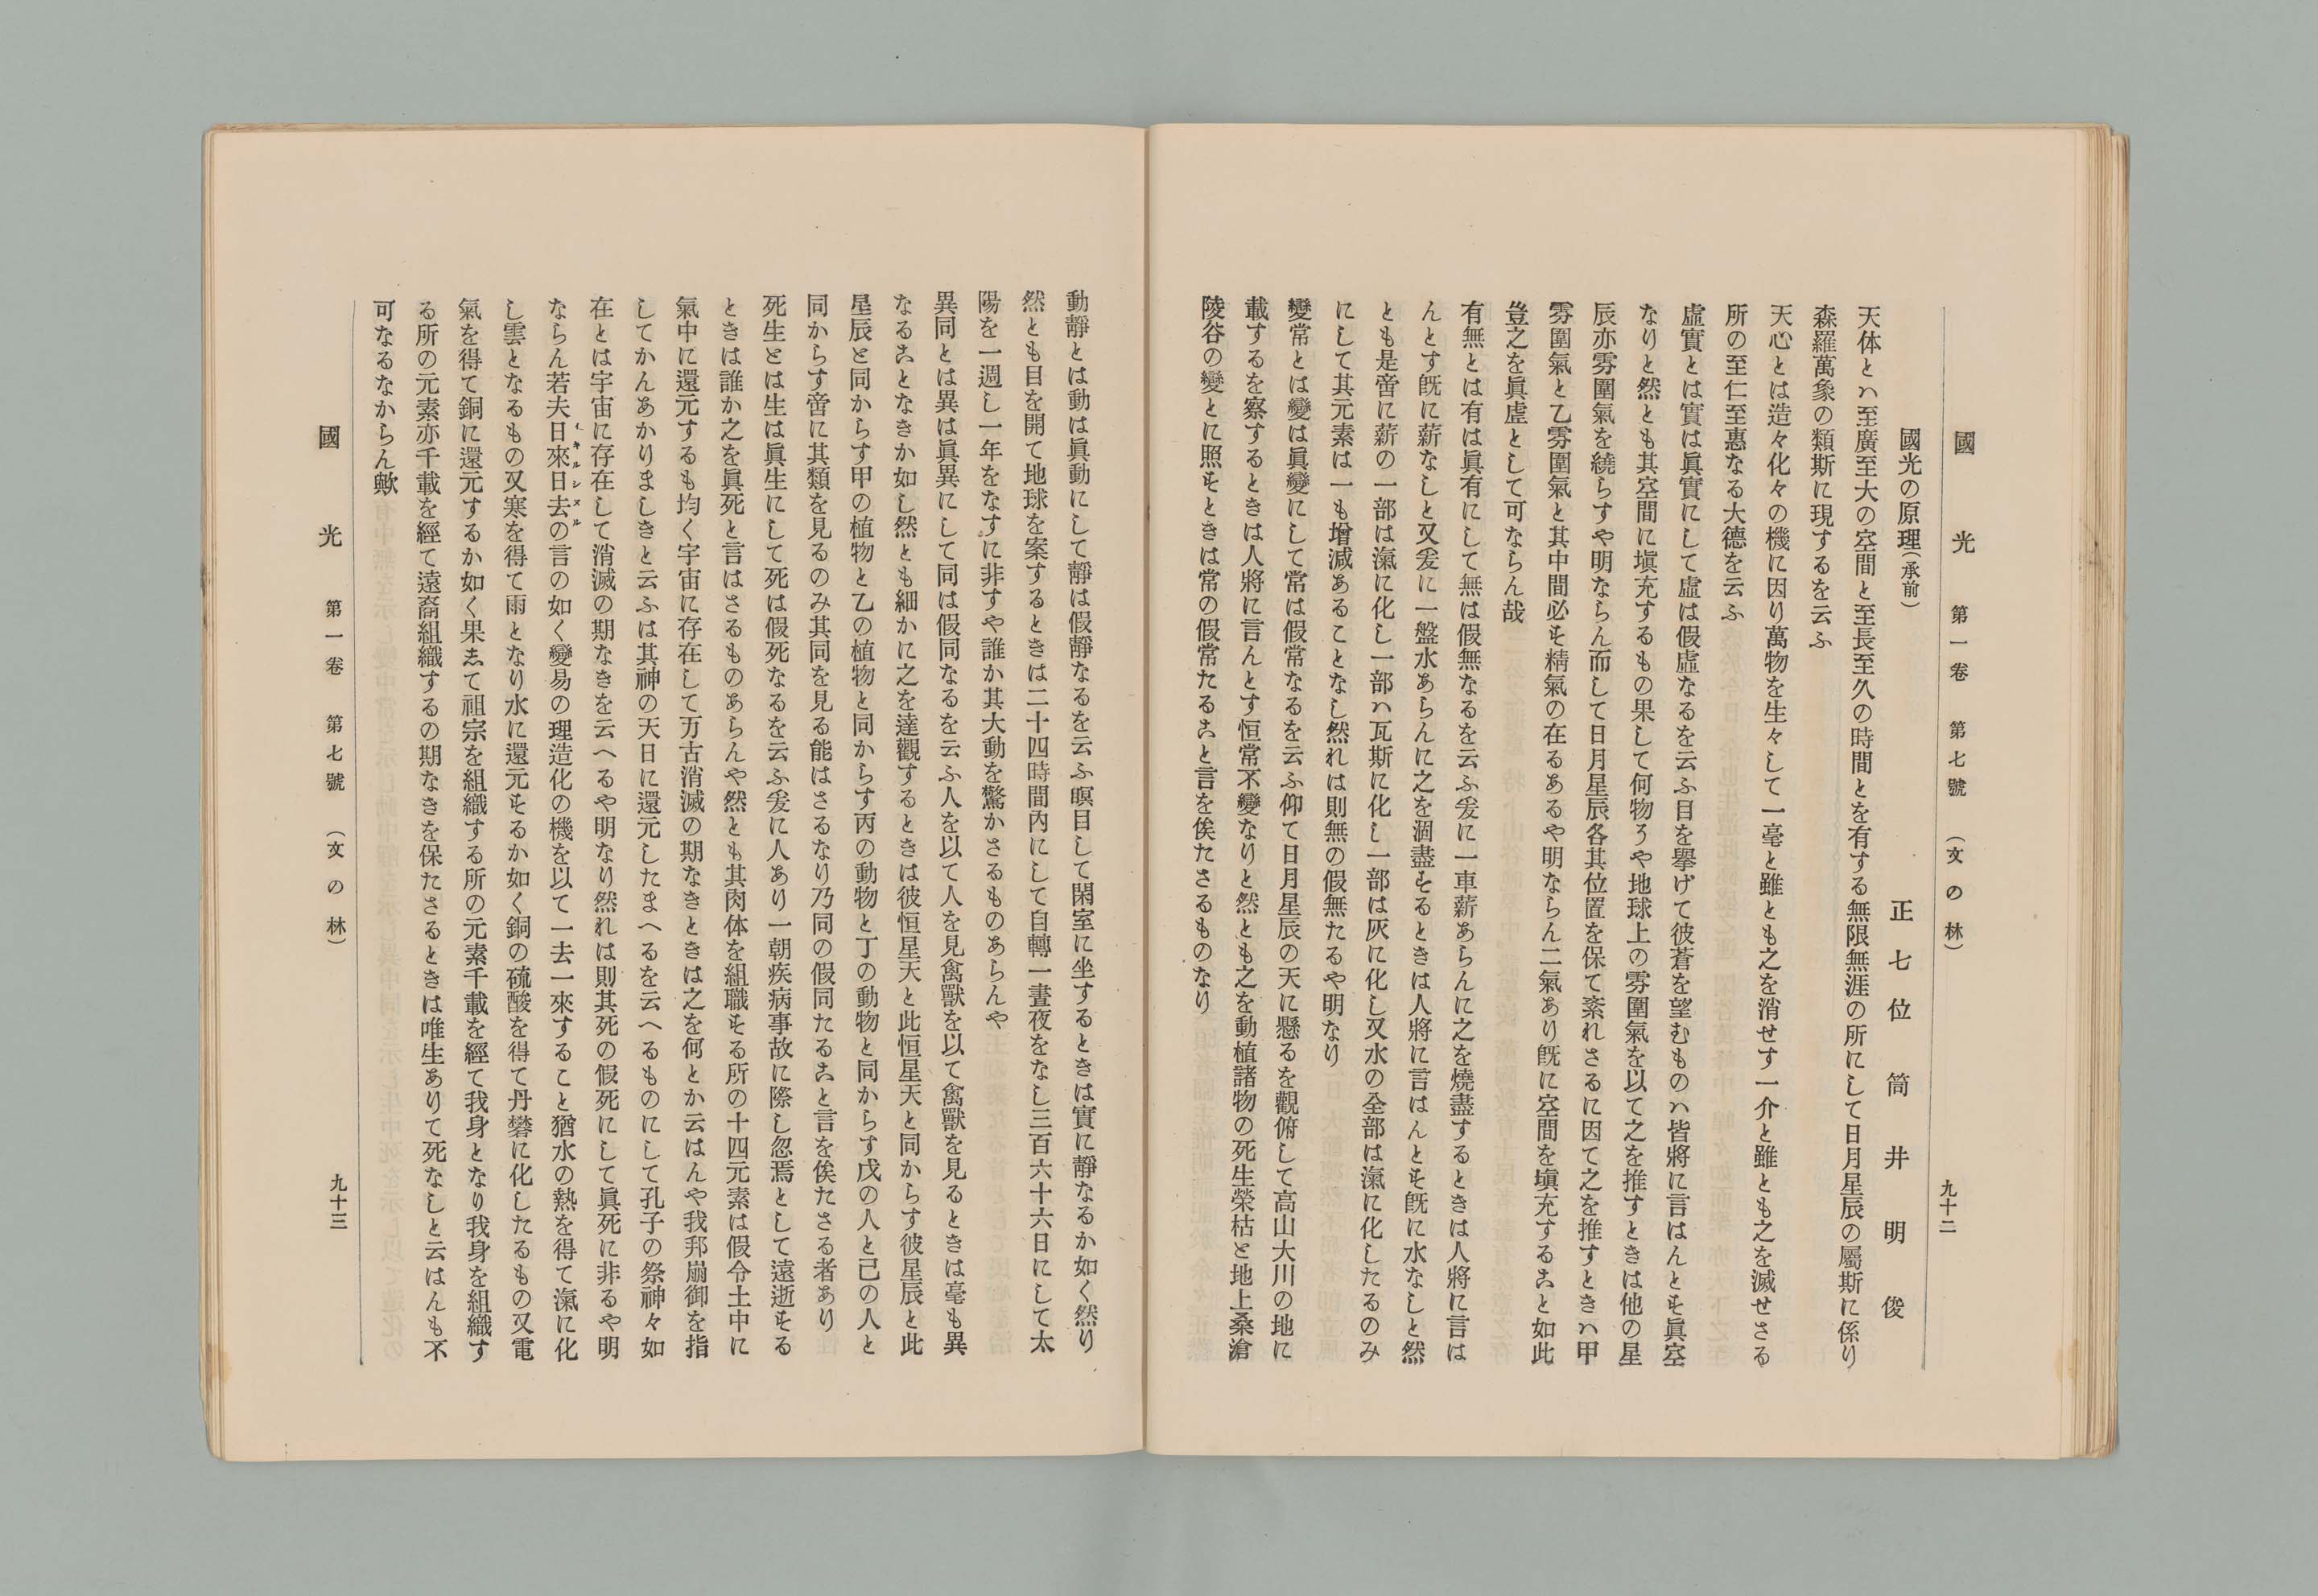 國光 第一卷 第七號 (文の林) 九十二
國光の原理(承前)
正七位 筒井明俊
天体とハ至廣至大の空間と至長至久の時間とを有する無限無涯の所にして日月星辰の屬斯に係り
森羅萬象の類斯に現するを云ふ
天心とは造々化々の機に因り萬物を生々して一毫と雖とも之を消せす一介と雖とも之を滅せさる
所の至仁至惠なる大德を云ふ
虛實とは實は眞實にして虛は假虛なるを云ふ目を擧げて彼蒼を望むものハ皆將に言はんとす眞空
なりと然とも其空間に塡充するもの果して何物ろや地球上の雰圍氣を以て之を推すときは他の星
辰亦雰圍氣を繞らすや明ならん而して日月星辰各其位置を保て紊れさるに因て之を推すときハ甲
雰圍氣と乙雰圍氣と其中間必す精氣の在るあるや明ならん二氣あり旣に空間を塡充すること如此
豈之を眞虛として可ならん哉
有無とは有は眞有にして無は假無なるを云ふ爰に一車薪あらんに之を燒盡するときは人將に言は
んとす旣に薪なしと又爰に一盤水あらんに之を涸盡するときは人將に言はんとす旣に水なしと然
とも是啻に薪の一部は滊に化し一部ハ瓦斯に化し一部は灰に化し又水の全部は滊に化したるのみ
にして其元素は一も增減あることなし然れは則無の假無たるや明なり
變常とは變は眞變にして常は假常なるを云ふ仰て日月星辰の天に懸るを觀俯して高山大川の地に
載するを察するときは人將に言んとす恒常不變なりと然とも之を動植諸物の死生榮枯と地上桑滄
陵谷の變とに照すときは常の假常たること言を俟たさるものなり
動靜とは動は眞動にして靜は假靜なるを云ふ暝目して閑室に坐するときは實に靜なるか如く然り
然とも目を開て地球を案するときは二十四時間內にして自轉一晝夜をなし三百六十六日にして太
陽を一週し一年をなすに非すや誰か其大動を驚かさるものあらんや
異同とは異は眞異にして同は假同なるを云ふ人を以て人を見禽獸を以て禽獸を見るときは毫も異
なることなきか如し然とも細かに之を達觀するときは彼恒星天と此恒星天と同からす彼星辰と此
星辰と同からす甲の植物と乙の植物と同からす丙の動物と丁の動物と同からす戊の人と己の人と
同からす啻に其類を見るのみ其同を見る能はさるなり乃同の假同たること言を俟たさる者あり
死生とは生は眞生にして死は假死なるを云ふ爰に人あり一朝疾病事故に際し忽焉として遠逝する
ときは誰か之を眞死と言はさるものあらんや然とも其肉体を組職する所の十四元素は假令土中に
氣中に還元するも均く宇宙に存在して万古消滅の期なきときは之を何とか云はんや我邦崩御を指
してかんあかりましきと云ふは其神の天日に還元したまへるを云へるものにして孔子の祭神々如
在とは宇宙に存在して消滅の期なきを云へるや明なり然れは則其死の假死にして眞死に非るや明
ならん若夫日來日去の言の如く變易の理造化の機を以て一去一來すること猶水の熱を得て滊に化
し雲となるもの又寒を得て雨となり水に還元するか如く銅の硫酸を得て丹礬に化したるもの又電
氣を得て銅に還元するか如く果して祖宗を組織する所の元素千載を經て我身となり我身を組織す
る所の元素亦千載を經て遠裔組織するの期なきを保たさるときは唯生ありて死なしと云はんも不
可なるなからん歟
國光 第一卷 第七號 (文の林) 九十三